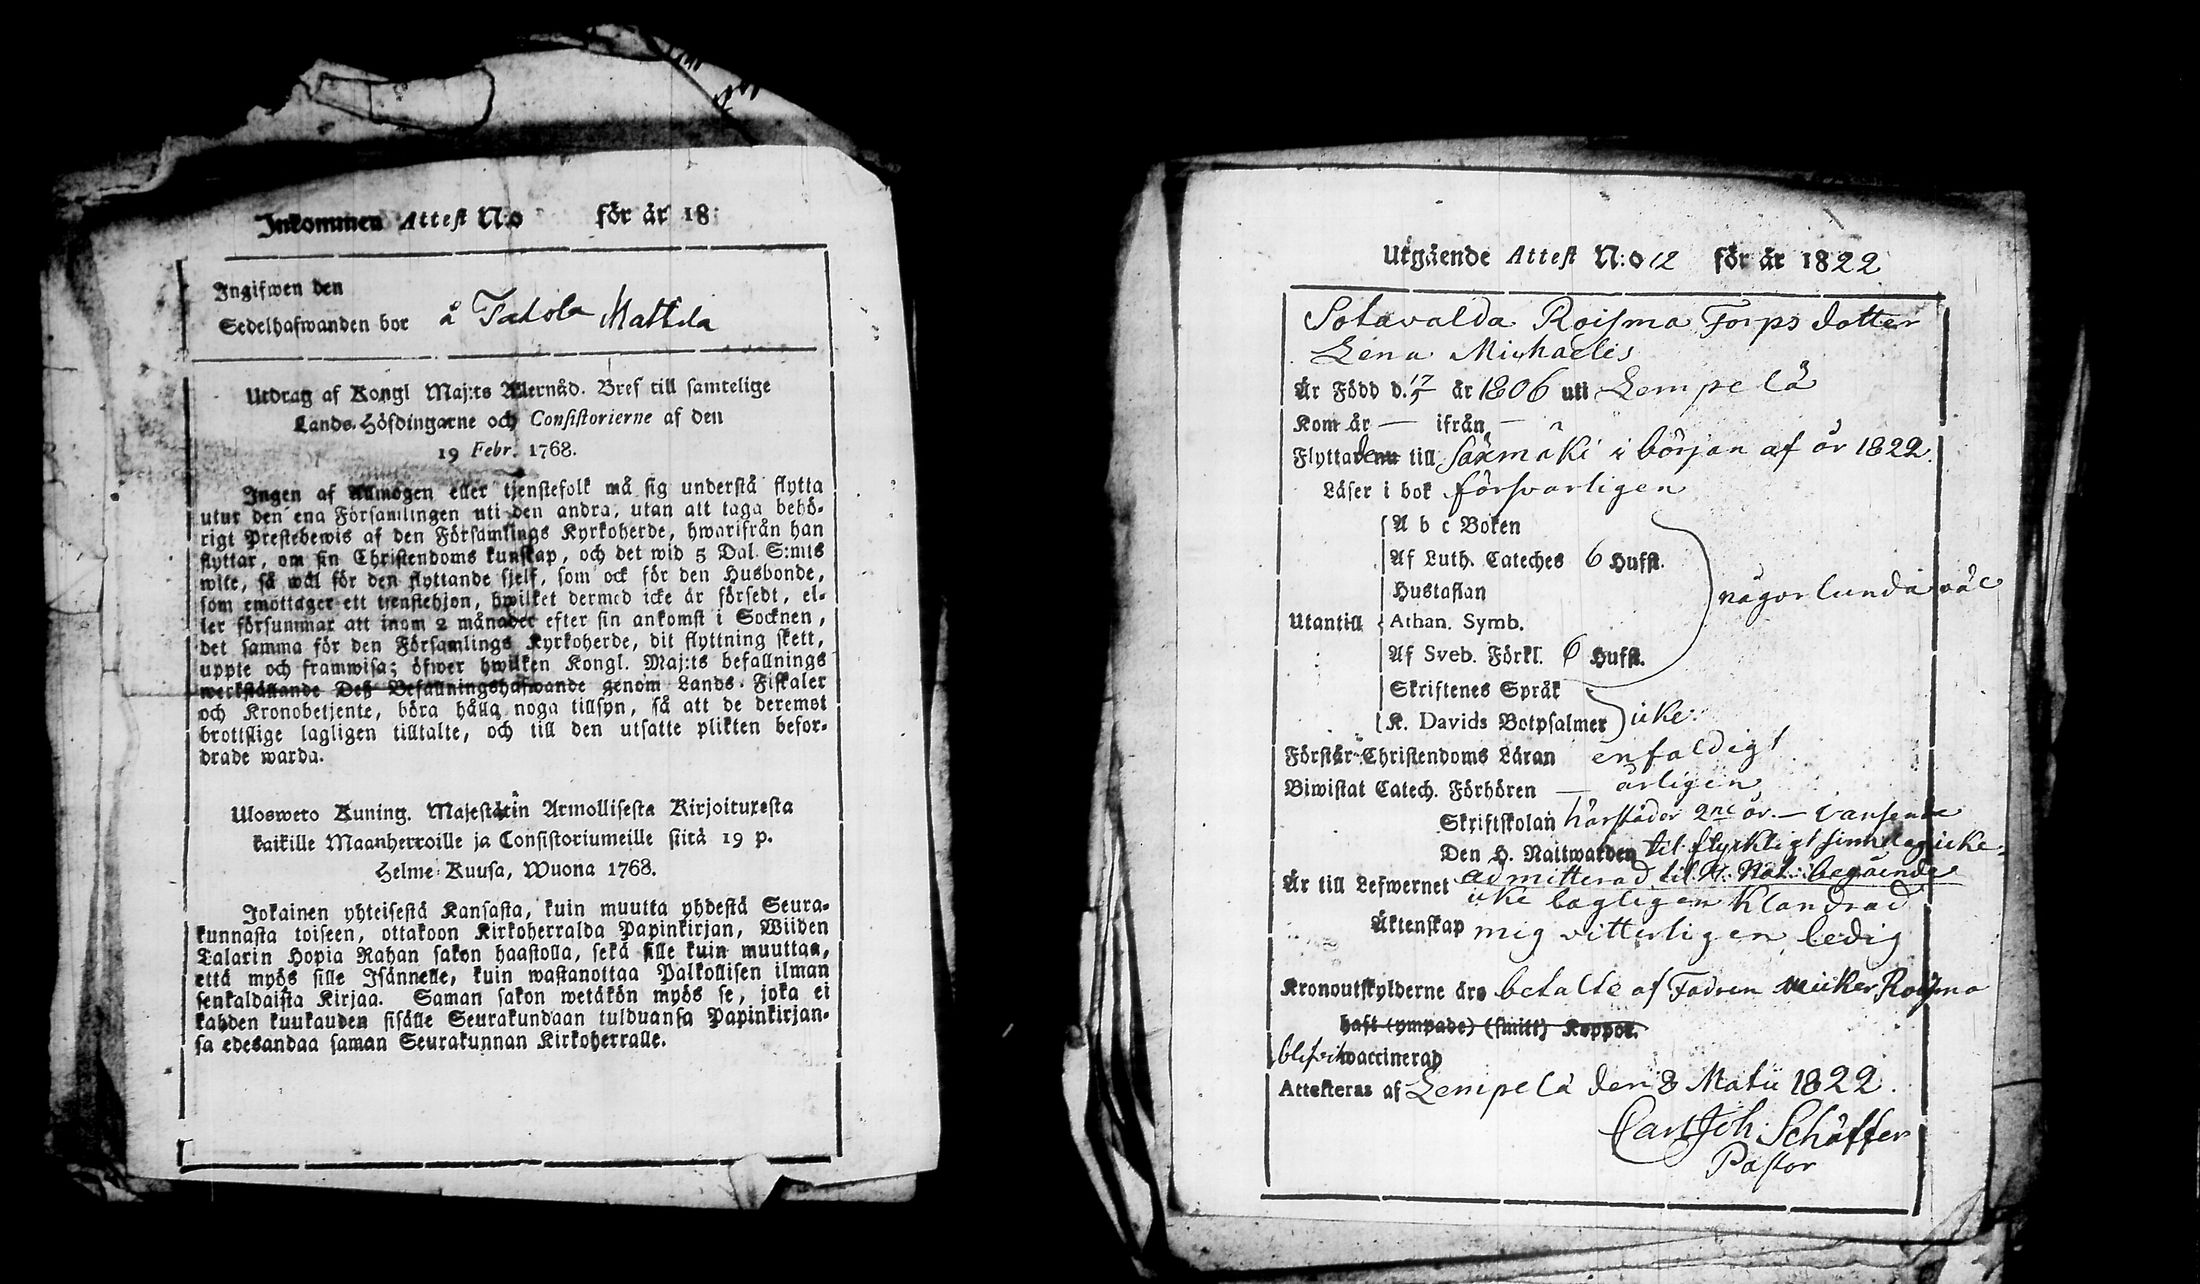 Inkommen Attest N:o för år 18
Ingifwen den
Sedelhafwanden bor å Tatola Mattila
Utdrag af Kongl Maj:ts Allernåd. Bref till samtelige
Lands-Höfdingarne och Consistorierne af den
19 Febr. 1768.
Ingen af Allmogen eller tjenstefolk må sig understå flytta
utur den ena Församlingen uti den andra, utan att taga behö-
rigt Prestebewis af den Församlings Kyrkoherde, hwarifrån han
flyttar, om sin Christendoms kunskap, och det wid 5 Dal. S:mts
wite, så wäl för den flyttande sjelf, som ock för den Husbonde,
som emottager ett tjenstehjon, hwilket dermed icke är försedt, el-
ler försummar att inom 2 månader efter sin ankomst i Socknen,
det samma för den Församlings Kyrkoherde, dit flyttning skett,
uppte och framwisa; öfwer hwilken Kongl. Maj:ts befallnings
werkställande Dess Befallningshafwande genom Lands-Fiskaler
och Kronobetjente, böra hålla noga tillsyn, så att de deremot
brottslige lagligen tilltalte, och till den utsatte plikten befor-
drade warda.
Uloswero Kuning. Majestätin Armollisesta Kirjoituxesta
kaikille Maanherroille ja Consistoriumeille siitä 19 p.
Helme-Kuusa, Wuona 1768.
Jokainen yhteisestä Kansasta, kuin muutta yhdestä Seura-
kunnasta toiseen, ottakoon Kirkoherralda Papinkirjan, Wiiden
Talarin Hopia Rahan sakon haastolla, sekä sille kuin muuttaa,
että myös sille Isännelle, kuin wastanottaa Palkollisen ilman
senkaldaista Kirjaa. Saman sakon wetäkön myös se, joka ei
kahden kuukauden sisälle Seurakundaan tulduansa Papinkirjan-
sa edesandaa saman Seurakunnan Kirkoherralle.
Utgående Attest N:o 12 för år 1822
Sotavalda Roisma Torps dotter
Lena Michaelis
Är Född d. 17/5 år 1806 uti Lempelä
Kom år — ifrån —
Flyttade till Säxmäki i början af år 1822.
Läser i bok försvarligen
A b c Boken
Af Luth. Cateches 6 Hufst.
Hustaflan
någorlunda väl
Utantill Athan. Symb.
Af Sveb. Förkl. 6 Hufst.
Skriftenes Språk
K. Davids Botpsalmer icke
Förstår Christendoms Läran enfaldigt
Biwistat Catech. Förhören — årligen
Skriftskolan härstädes 2ne år —
Den H. Nattwarden til flyktigt icke
Är till Lefwernet admitterad til H. Nat: begående
icke lagligen klandrad
Äktenskap mig vitterligen ledig
Kronoutskylderne äro betalte af Fadren Roisma
haft (ympade) (smitt) Koppor.
blifvit waccinerad
Attesteras af Lempelä den 8 Martii 1822.
Carl Joh. Schäffer
Pastor